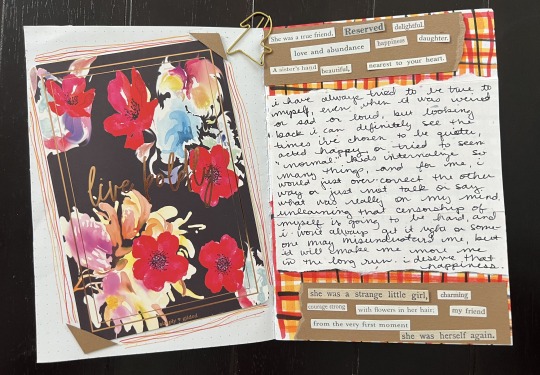 live boldly
She was a true friend.
Reserved
delightful
love and abundance
happiness
daughter.
A sister's hand
beautiful,
nearest to your heart.
i have always tried to be true to
myself, even when it was weird
or sad or loud, but looking
back i can definitely see the
times i've chosen to be quieter,
acted happy or tried to seem
"normal." kids internalize so
many things, and for me, i
would just over-correct the other
way or just not talk or say
what was really on my mind.
unlearning that censorship of
myself is going to be hard, and
i won't always get it right or some-
one may misunderstand me, but
it will make me more me
in the long run. i deserve that
happiness.
she was a strange little girl,
charming
courage strong
with flowers in her hair;
my friend
from the very first moment
she was herself again.